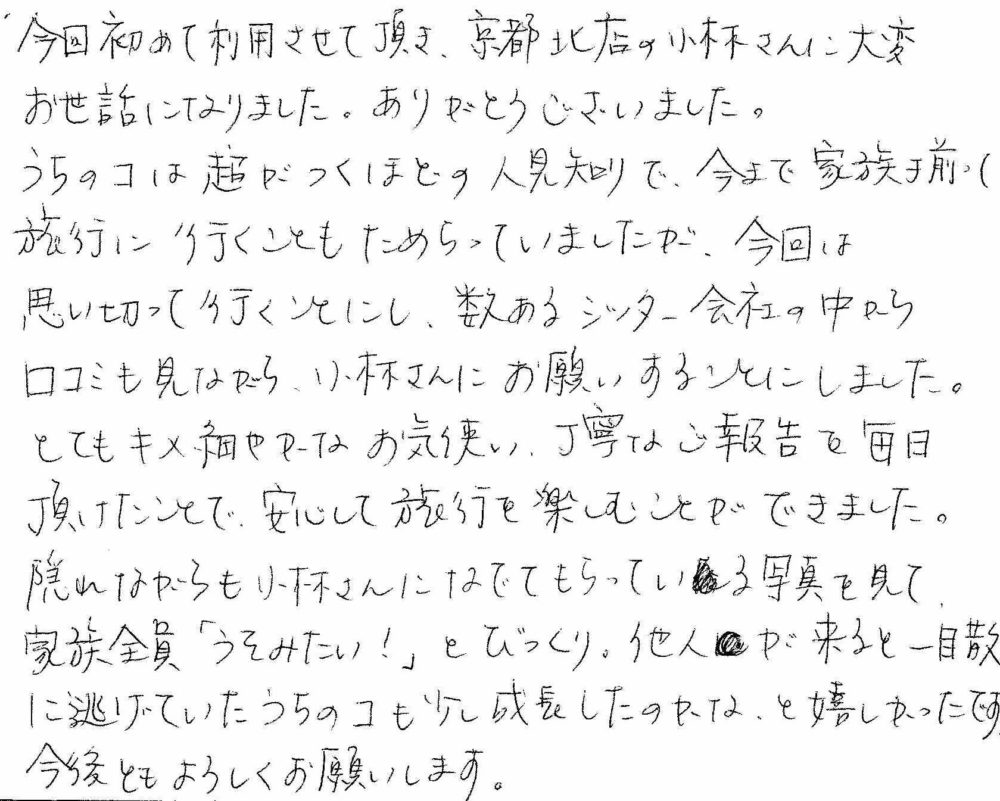 今回初めて利用させて頂き、京都北店の小林さんに大変
お世話になりました。ありがとうございました。
うちのコは超がつくほどの人見知りで、今まで家族揃って
旅行に行くこともためらっていましたが、今回は
思い切って行くことにし、数あるシッター会社の中から
口コミも見ながら、小林さんにお願いすることにしました。
とてもキメ細やかなお気使い、丁寧なご報告を毎日
頂けたことで、安心して旅行を楽しむことができました。
隠れながらも小林さんになでてもらっている写真を見て、
家族全員「うそみたい！」とびっくり。他人が来ると一目散
に逃げていたうちのコも少し成長したのかな、と嬉しかったです
今後ともよろしくお願いします。